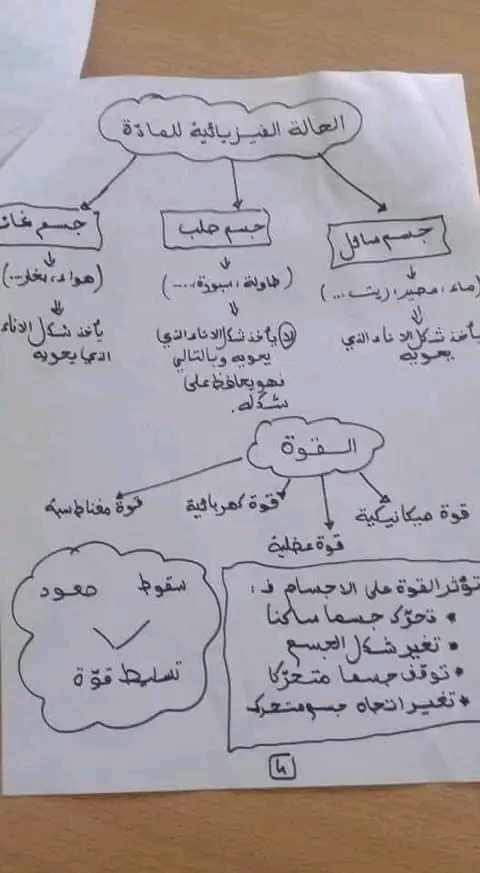 الحالة الفيزيائية للمادّة
جسم سائل
(ماء، عصير، زيت ...)
يأخذ شكل الاناء الذي
يحويه
جسم صلب
(طاولة، سبورة، ....)
لا يأخذ شكل الاناء الذي
يحويه وبالتالي
فهو يحافظ على
شكله.
جسم غاز
(هواء، بخار ...)
يأخذ شكل الاناء
الذي يحويه
القوة
قوة ميكانيكية
قوة عضلية
قوة كهربائية
قوة مغناطسية
تؤثر القوة على الاجسام ف:
• تحرّك جسما ساكنا
• تغير شكل الجسم
• توقف جسما متحرّكا
• تغير اتجاه جسم متحرك
سقوط صعود
تسليط قوّة
4